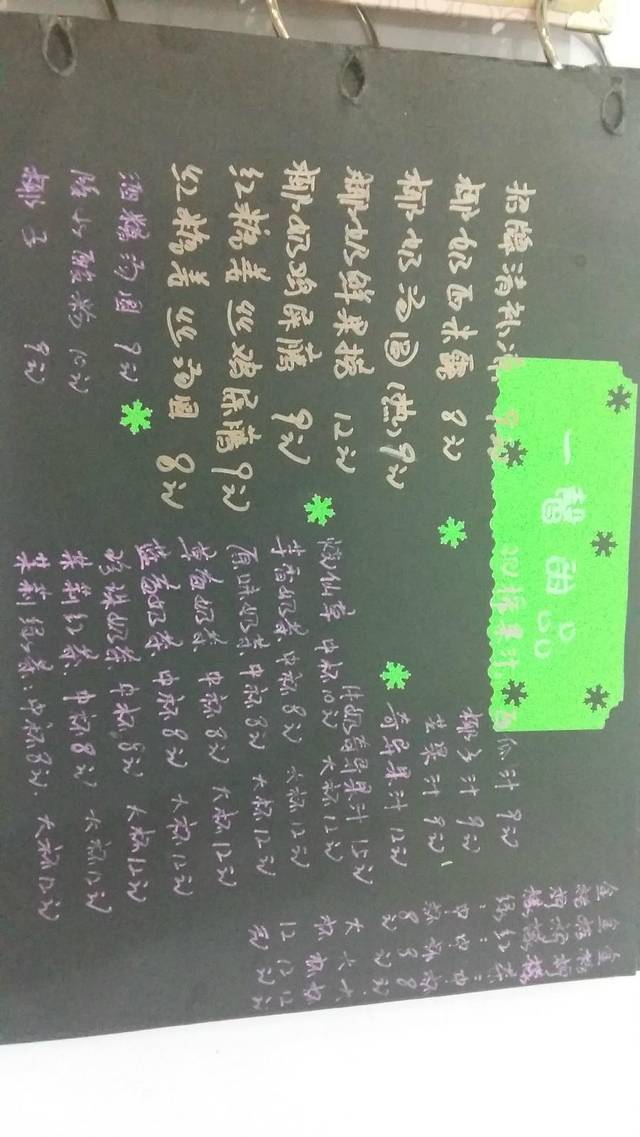 一
品
招牌清补凉 9元
椰奶西米露 8元
椰奶汤圆(热)9元
椰奶鲜果捞 12元
椰奶鸡屎藤 9元
红糖姜丝鸡屎藤 9元
红糖姜丝汤圆 8元
酒糟汤圆 9元
陵水酸粉 10元
椰子 9元
瓜汁 9元
椰子汁 9元
芒果汁 9元
奇异果汁 12元
奇异果汁 15元
烧仙草 中杯10元 大杯12元
草香奶茶 中杯8元 大杯12元
原味奶茶 中杯8元 大杯12元
草莓奶茶 中杯8元 大杯12元
蓝莓奶茶 中杯8元 大杯12元
珍珠奶茶 中杯8元 大杯12元
茉莉红茶: 中杯8元 大杯12元
茉莉绿茶: 中杯8元. 大杯12元
金桔柠檬: 中杯8元 大杯12元
金桔柠檬红: 中杯8元 大杯12元
金桔柠檬绿: 中杯8元 大杯12元